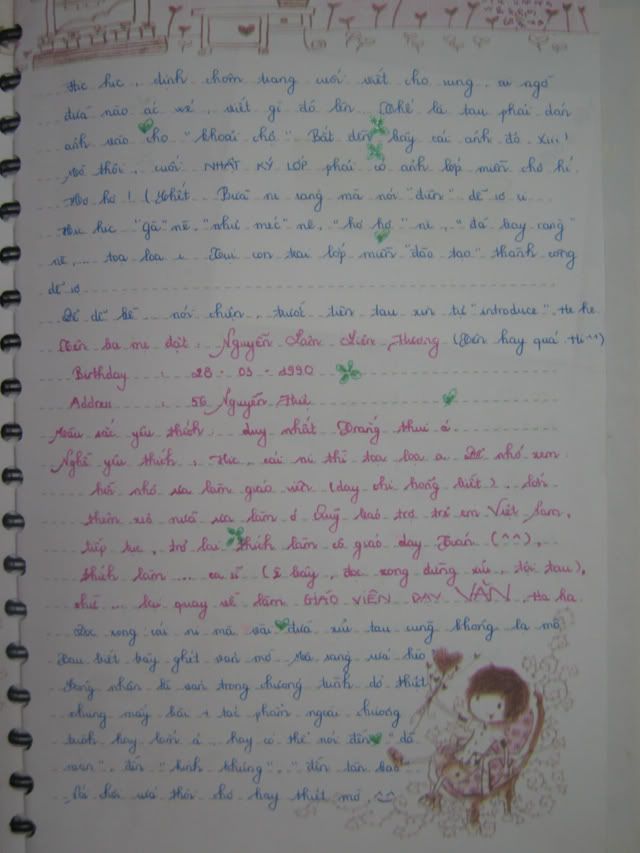 Híc híc, định chôm trang cuối viết cho sung, ai ngờ
đứa nào ác wá, viết gì đó lên. Thế là tau phải dán
ảnh vào cho "khoái chó". Bắt đền bây cái ảnh đó. Xíu!
Mà thôi, cuối NHẬT KÝ LỚP phải có ảnh lớp mình chớ hỉ.
Hơ hơ! (Chết. Bữa ni sang mà nói "điên" dễ sợ
Hic hic "gà" nè, "như méc" nè, "hơ hơ" nì, "đá bay răng"
nè,... toa loa
dễ sợ
Để dễ bề nói chiện, trước tiên tau xin tự "introduce". He he
Tên ba mẹ đặt: Nguyễn Liên Hương (Tên hay quá Hi^^)
Birthday : 28 - 03 - 1990
Address : 56 Nguyễn Huệ
Màu sắc yêu thích: duy nhất Trắng thui á.
Nghề yêu thích: Híc, cái ni thì toa loa a. Để nhớ xem
hồi nhỏ ưa làm giáo viên (dạy chi hổng biết), lớn
thêm xíu nữa ưa làm ở Quỹ bảo trợ trẻ em Việt Nam,
tiếp tục, trở lại thích làm cô giáo dạy Toán (^^),
thích làm ... ca sĩ (ê bây, đọc xong đừng xỉu, tội tau),
chừ ... lại quay về làm GIÁO VIÊN DẠY VĂN. Ha ha
Đọc xong cái ni mà vài đứa xỉu tau cũng không lạ mô
Tau biết bây ghét văn mờ. Mà răng
Công nhận là văn trong chương trình dở thiệt
nhưng mấy bài + tác phẩm ngoài chương
trình hay lắm á... hay có thể nói đến "đã
man", đến "kinh khủng", đến tàn bạo
hay thiệt mờ.